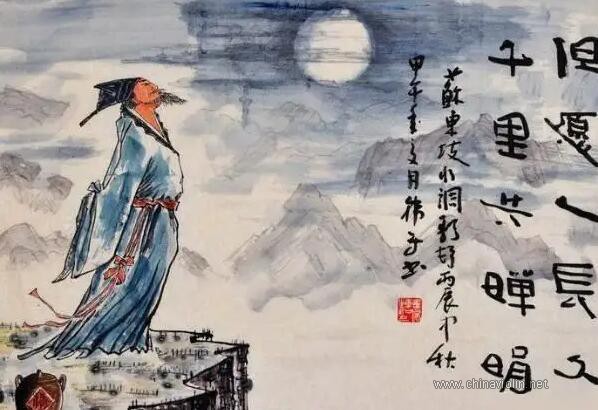 但愿人長久
千里共嬋娟
蘇東坡水調歌頭丙辰中秋
甲午月徐
酒
www.chinaviolin.net